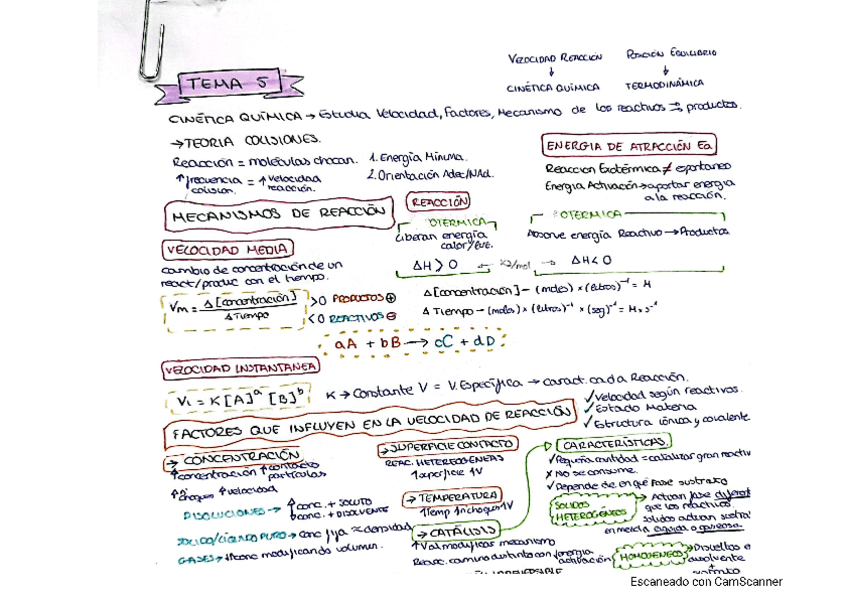 VELOCIDAD REACCIÓN
POSICIÓN EQUILIBRIO
↓
↓
CINÉTICA QUÍMICA
TERMODINÁMICA
TEMA 5
CINÉTICA QUÍMICA → Estudia Velocidad, Factores, Mecanismo de los reactivos ⇒ productos.
→ TEORIA COLISIONES.
Reacción = moléculas chocan.
↑ frecuencia colisión. = ↑ velocidad reacción.
1. Energía Mínima.
2. Orientación Adec/NAd.
ENERGIA DE ATRACCIÓN Ea
Reaccion Exotérmica ≠ espontaneo
Energia Activación → aportar energia
a la reacción.
MECANISMOS DE REACCIÓN
REACCIÓN
OTERMICA
Liberan energía
calor/
ΔH > 0
OTERMICA
Absorve energía Reactivo → Productos
ΔH < 0
VELOCIDAD MEDIA
cambio de concentración de un
react/produc con el tiempo.
Vm = Δ[concentración] / ΔTiempo
>0 PRODUCTOS ⊕
<0 REACTIVOS ⊖
Δ[concentración] – (moles) × (litros)⁻¹ = M
Δ Tiempo – (moles) × (litros)⁻¹ × (seg)⁻¹ = M × s⁻¹
aA + bB → cC + dD
VELOCIDAD INSTANTANEA
Vi = K[A]ᵃ [B]ᵇ
K → Constante V = V. Específica → caract. cada Reacción.
FACTORES QUE INFLUYEN EN LA VELOCIDAD DE REACCIÓN
✓ Velocidad según reactivos.
✓ Estado Materia
✓ Estructura iónica y covalente
→ CONCENTRACIÓN
↑ concentración ↑ contacto
partículas
↑ choques ↑ velocidad
DISOLUCIONES → ↑ conc. + SOLUTO
conc. + DISOLVENTE
SOLIDO/LÍQUIDO PURO → conc fija ≈ densidad
GASES → conc modificando volumen.
→ SUPERFICIE CONTACTO
REAC. HETEREOGENEAS
↑ superficie ↑V
→ TEMPERATURA
↑ Temp ↑ choques ↑V
→ CATÁLISIS
↑ V al modificar mecanismo
Reacc. camino distinto con energia
activación
CARACTERÍSTICAS.
✓ Pequeña cantidad = catalizar gran reactiv
✗ No se consume.
✓ Depende de en qué Fase sustrato
SOLIDOS HETEROGÉNEOS
→ Actuan fase diferent
que los reactivos.
solidos actuan sustrat
en mezcla liquida o gaseosa.
HOMOGENEOS
→ Disueltos e
disolvente
+
sustrato
Escaneado con CamScanner